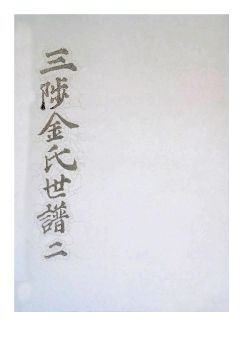 三陟金氏世譜二